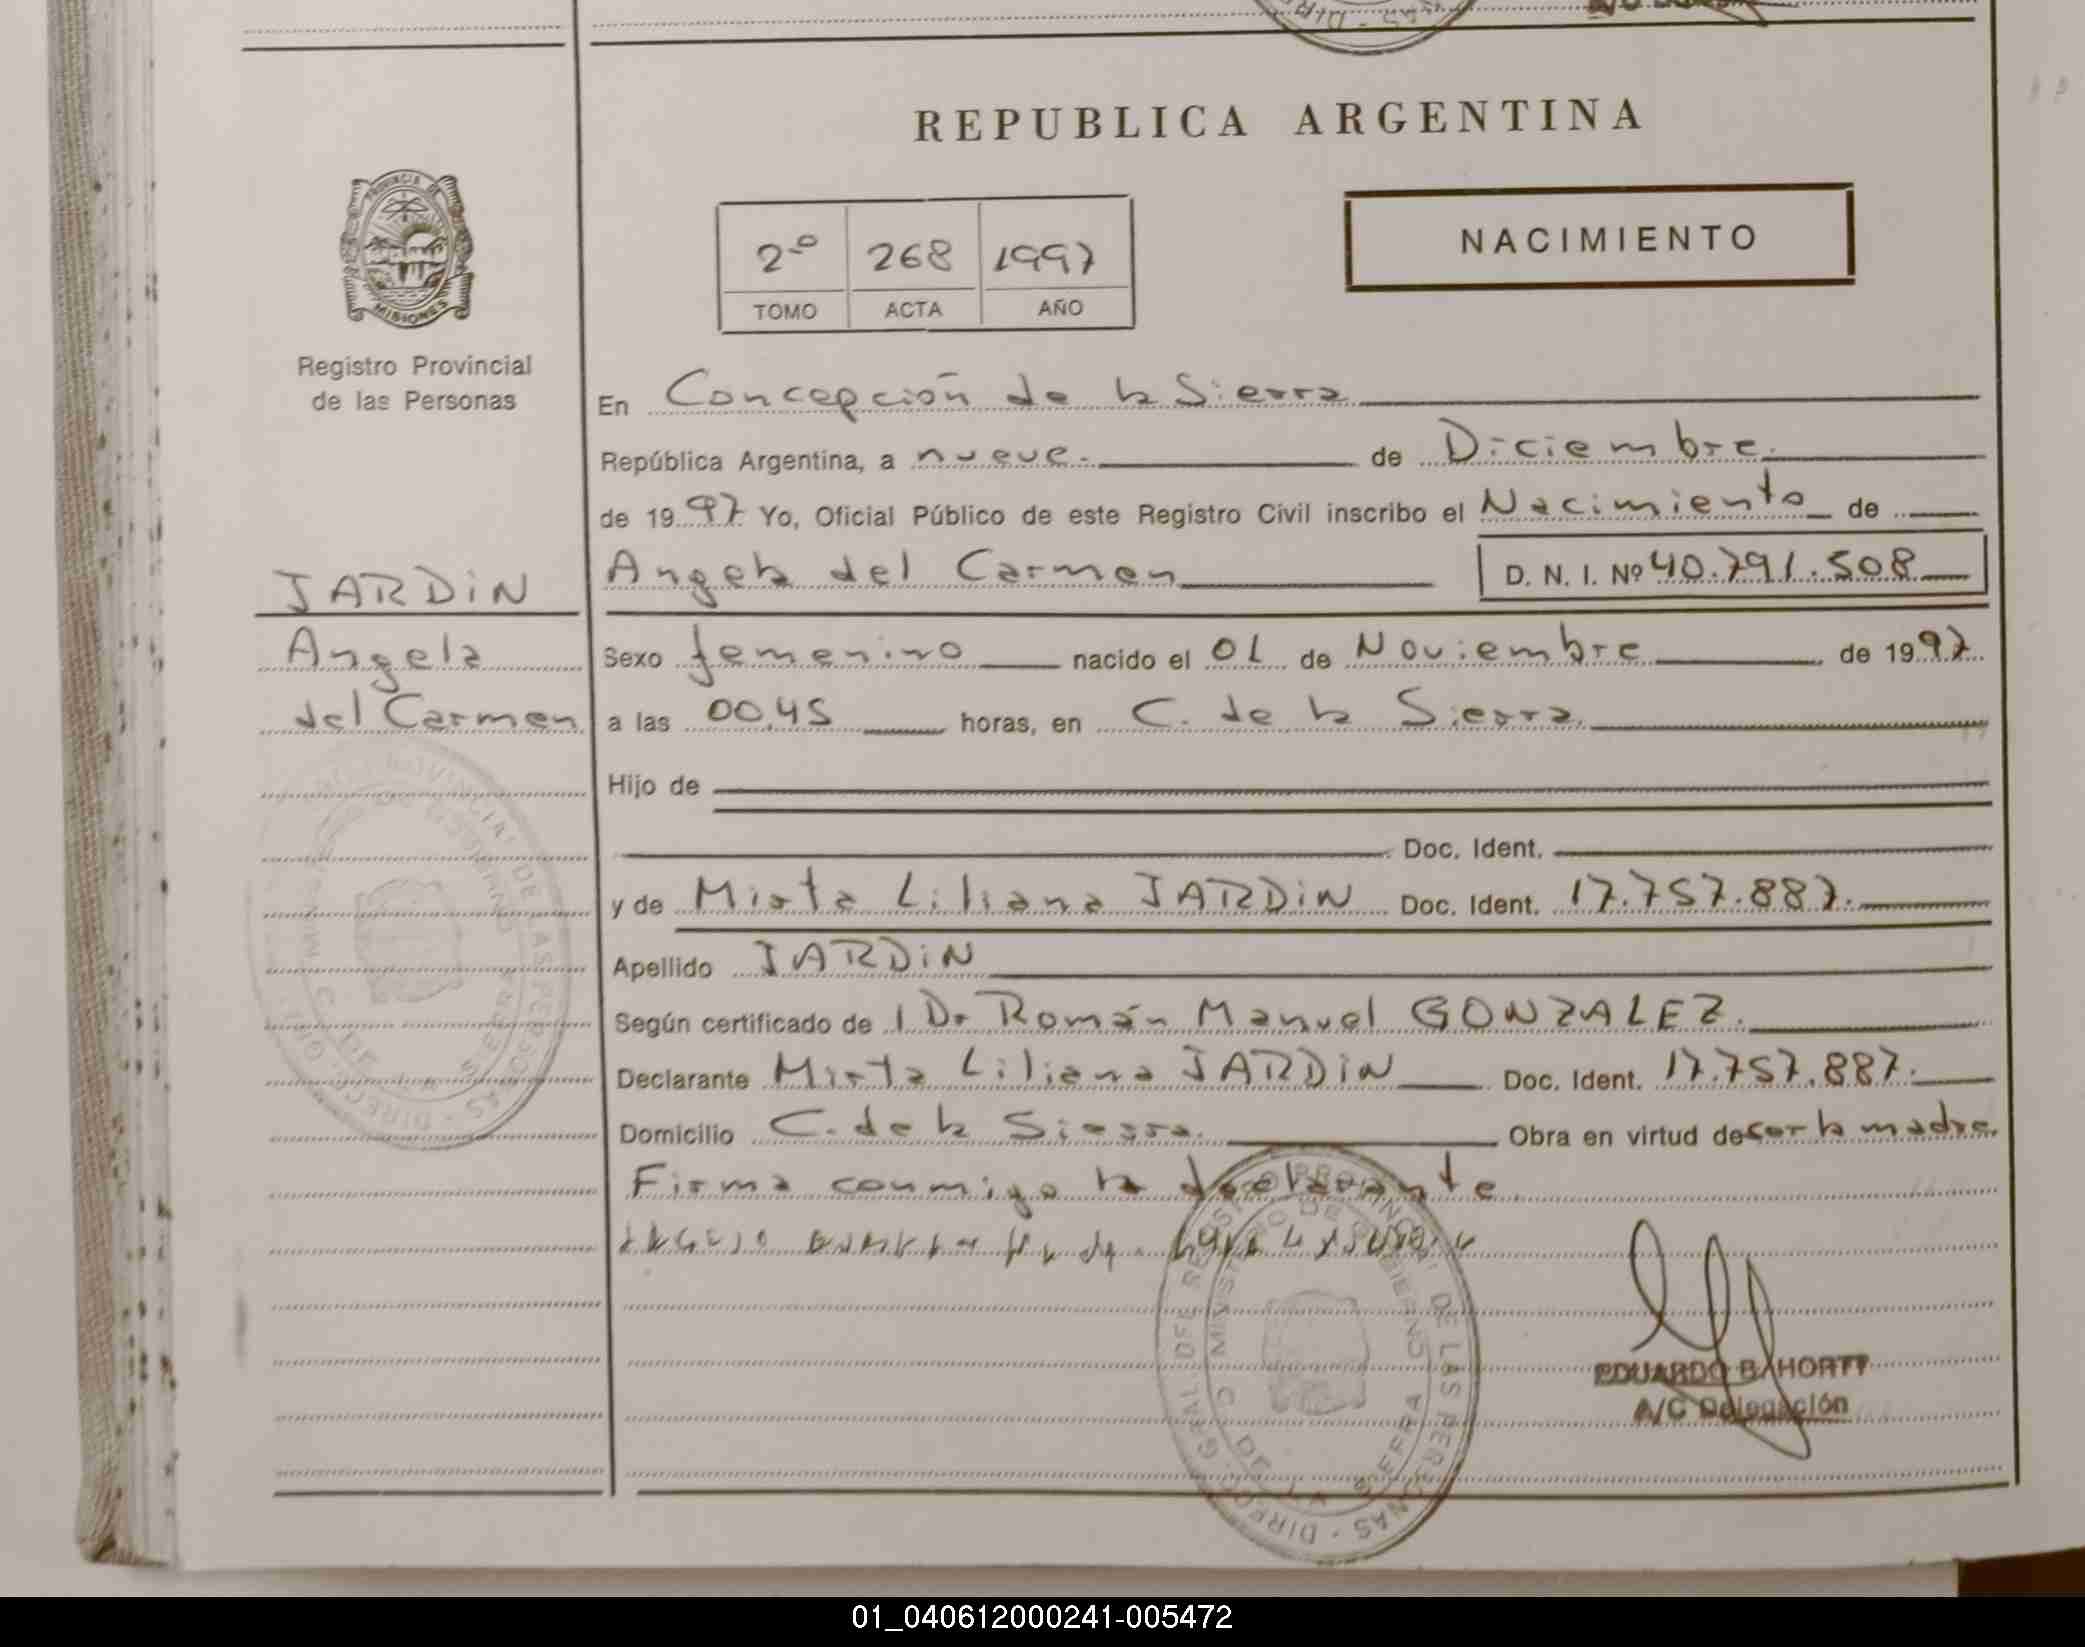 REPUBLICA ARGENTINA
PROVINCIA DE
MISIONES
Registro Provincial
de las Personas
2º 268 1997
TOMO ACTA AÑO
NACIMIENTO
En Concepción de la Sierra
República Argentina, a nueve. de Diciembre.
de 1997 Yo, Oficial Público de este Registro Civil inscribo el Nacimiento de
JARDiN
Angela
del Carmen
Angela del Carmen D. N. I. Nº 40.791.508
Sexo femenino nacido el 01 de Noviembre de 1997
a las 00,45 horas, en C. de la Sierra.
Hijo de
Doc. Ident.
y de Mirta Liliana JARDiN Doc. Ident. 17.757.887.
Apellido JARDiN
Según certificado de 1 Dr Román Manuel GONZALEZ.
Declarante Mirta Liliana JARDiN Doc. Ident. 17.757.887.
Domicilio C. de la Sierra. Obra en virtud de ser la madre.
Firma conmigo la declarante
EDUARDO B. HORTT
A/C Delegación
01_040612000241-005472